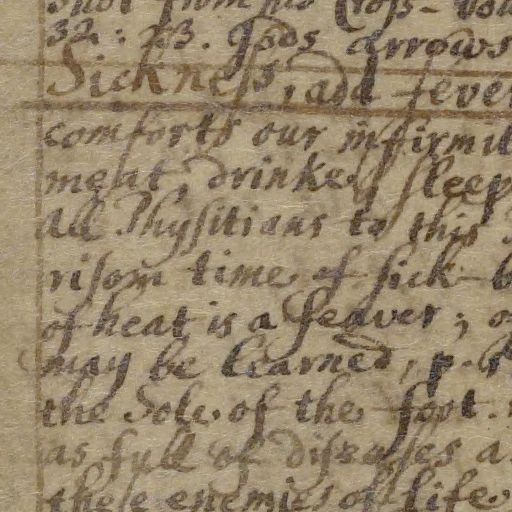 shot from his Cross-bow
32: 23. Gods arrows
Sickness, add fever
comforts our infirmit
meat, drinke, sleep
All Physitians to this
risom time of sick-b
of heat is a feaver; o
may be learned, p.
the Sole of the foot.
as full of diseases a
these enemies of life